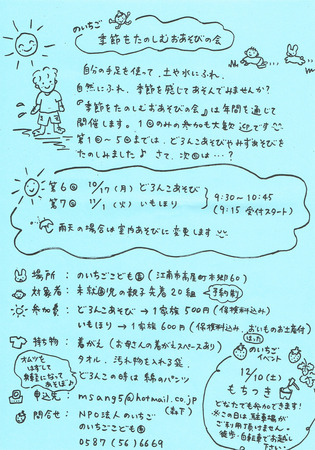 のいちご
季節をたのしむおあそびの会
自分の手足を使って、土や水にふれ、
自然にふれ、季節を感じてあそんでみませんか?
『季節をたのしむおあそびの会』は年間を通じて
開催します。1回のみの参加も大歓迎です
第1回~5回までは、どろんこあそびやみずあそびを
たのしみました♪ さて、次回は…?
第6回 10/17(月) どろんこあそび
第7回 11/1(火) いもほり
9:30~10:45
(9:15 受付スタート)
雨天の場合は室内あそびに変更します
場所 : のいちごこども園(江南市古屋町本郷60)
対象者 : 未就園児の親子先着20組 予約制
参加費 : どろんこあそび→1家族500円(保険料込み)
いもほり→1家族600円(保険料込み、おいものお土産付)
持ち物 : 着がえ(お母さんの着がえスペースあり)
タオル、汚れ物を入れる袋、
どろんこの時は綿のパンツ
オムツを
はずして
身軽になって
あそぼ♪
申込先 : msang5@hotmail.co.jp
(森下)
問合せ : NPO法人のいちご
のいちごこども園
0587(56)6669
のいちご
イベント
12/10(土)
もちつき
どなたでも参加できます!
※この日は駐車場が
ご利用頂けません。
徒歩・自転車でお越し
下さい。